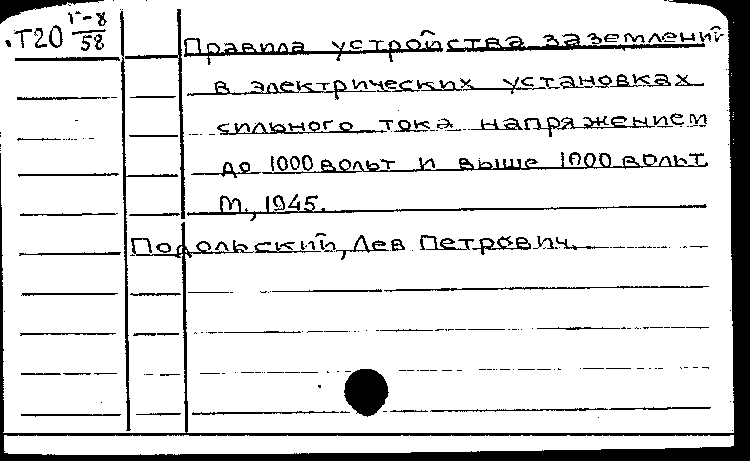 Т20 Г-8/58
Правила устройства заземлений
в электрических установках
сильного тока напряжением
до 1000 вольт и выше 1000 вольт.
М., 1945.
Подольский, Лев Петрович.